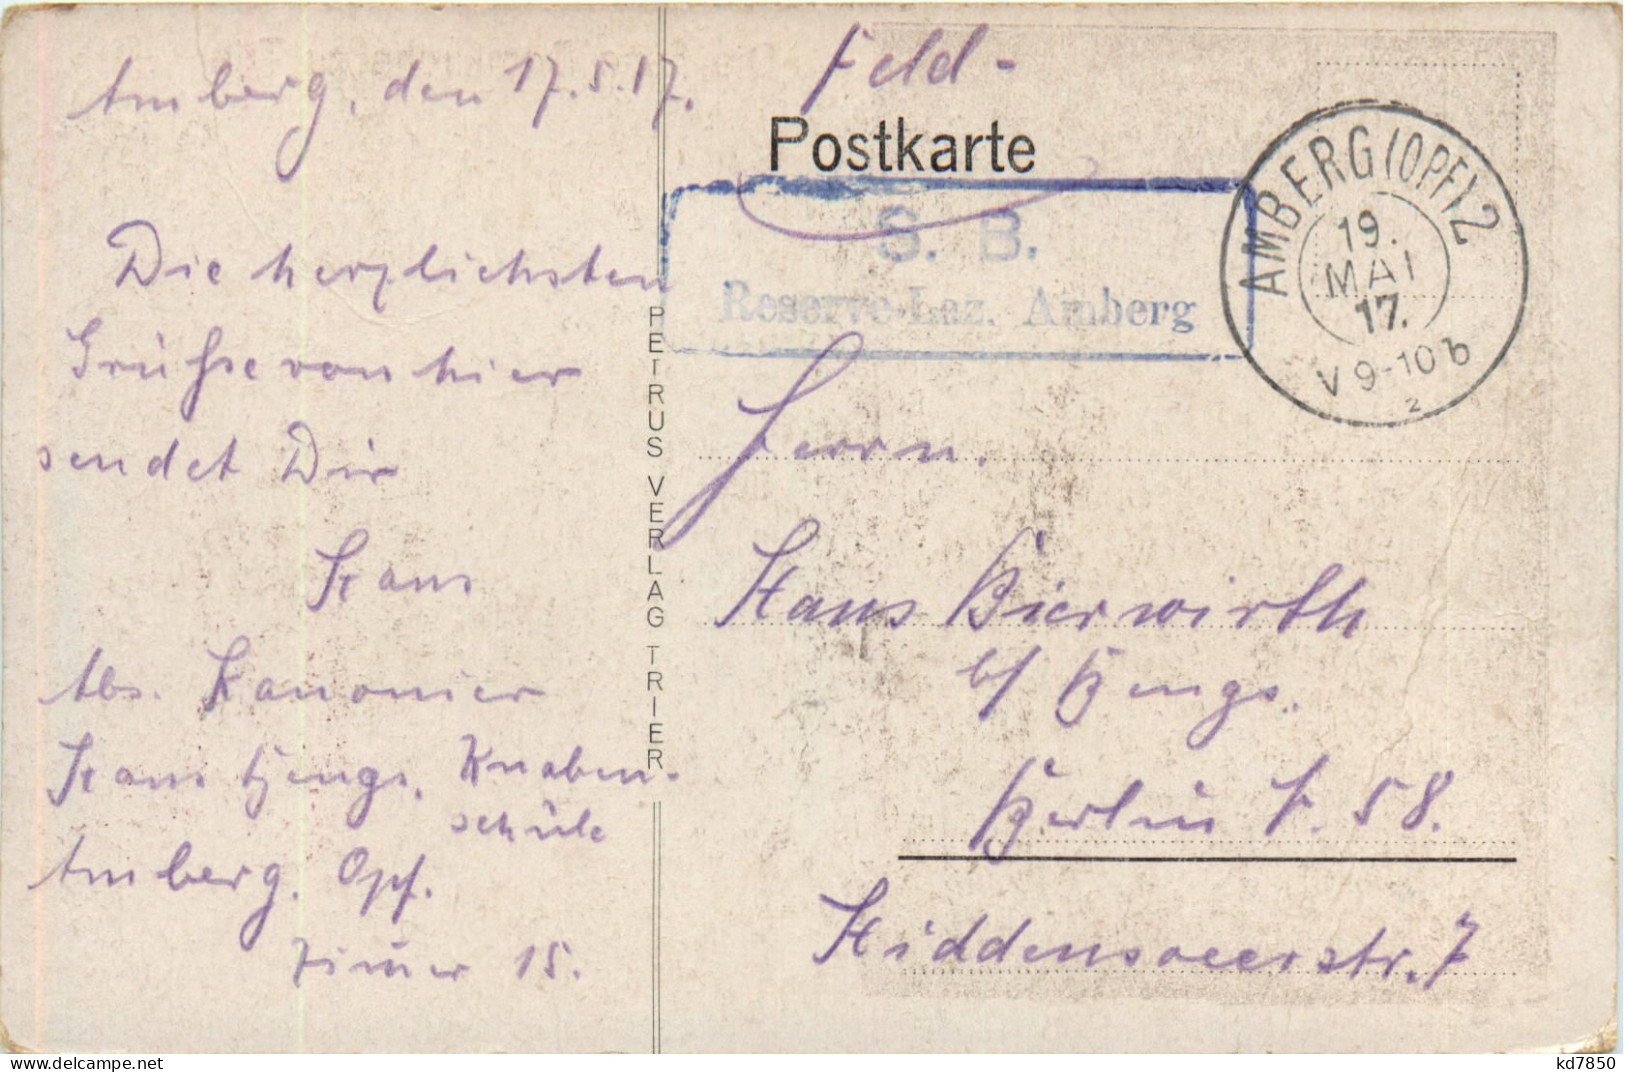 Amberg, den 17.5.17.
Die herzlichsten
Grüsse von hier
sendet Dir
Franz
Abs. Kanonier
Franz Hengs. Knaben-
schule
Amberg. Opf.
Zimer 15.
PETRUS VERLAG TRIER
Feld-
Postkarte
S. B.
Reserve-Laz. Amberg
AMBERG (OPF) 2
19.
MAI
17.
V 9-10 b
2
Herrn.
Hans Bierwirth
b/ Hengs.
Berlin N. 58.
Hiddenseerstr. 7
https://www.delcampe.net
kd7850